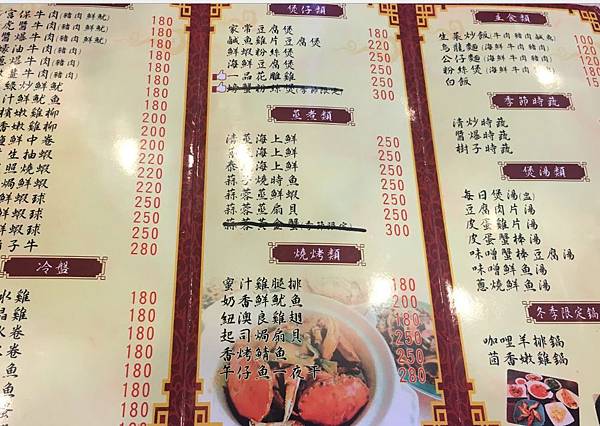 宮保牛肉(豬肉鮮魷) 180
虎醬牛肉(豬肉鮮魷) 180
醬爆牛肉(豬肉鮮魷) 180
蠔油牛肉(豬肉) 180
嫩薑牛肉(豬肉) 180
綾炒鮮魷 180
汁鮮魷魚 180
檳嫩雞柳 200
香嫩雞柳 200
鮮中卷 220
生抽蝦 220
照燒蝦 220
焗鮮蝦 220
鮮蝦球 250
鮮蝦球 250
鮮蝦球 250
子牛 280
冷盤
水雞 180
晶雞 180
卷 180
卷 180
魚 180
魚 180
180
煲仔類
家常豆腐煲 180
鹹魚雞片豆腐煲 220
鮮蝦粉絲煲 250
海鮮豆腐煲 250
一品花雕雞 250
螃蟹粉絲煲(季節限定) 300
蒸煮類
清蒸海上鮮 250
海上鮮 250
泰 海上鮮 250
蒜子燒時魚 250
蒜蓉蒸鮮蝦 250
蒜蓉蒸扇貝 250
蒜蓉蒸全蟹(季節限定) 300
燒烤類
蜜汁雞腿排 180
奶香鮮魷魚 200
紐澳良雞翅 200
起司焗扇貝 250
香烤鯖魚 250
午仔魚一夜干 280
主食類
生菜炒飯(牛肉豬肉鹹魚) 100
烏龍麵(海鮮牛肉豬肉) 120
公仔麵(海鮮牛肉豬肉) 120
粉絲煲(海鮮牛肉豬肉)
白飯
季節時蔬
清炒時蔬
醬爆時蔬
樹子時蔬
煲湯類
每日煲湯(盅)
豆腐肉片湯
皮蛋雞片湯
皮蛋蟹棒湯
味噌蟹棒豆腐湯
味噌鮮魚湯
蔥燒鮮魚湯
冬季限定鍋
咖哩羊排鍋
茴香嫩雞鍋